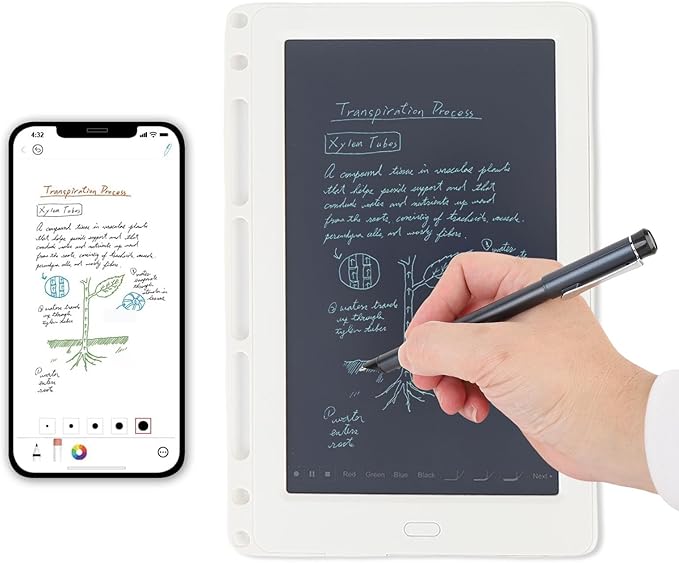 4:32
Transpiration Process
Xylem Tubes
A compound tissue in vascular plants
that helps provide support and that
conducts water and nutrients up
from the roots, consisting of tracheids, vessels,
parenchyma cells, and woody fibers.
③ water
evaporate
through
② waters travels
up through
xylem tubes
① water
enters
roots
Transpiration Process
Xylem Tubes
A compound tissue in vascular plants
that helps provide support and that
conducts water and nutrients up
from the roots, consisting of tracheids, vessels,
parenchyma cells, and woody fibers.
③ water
② waters travels
up through
xylem tubes
① water
enters
roots
Red Green Blue Black Next